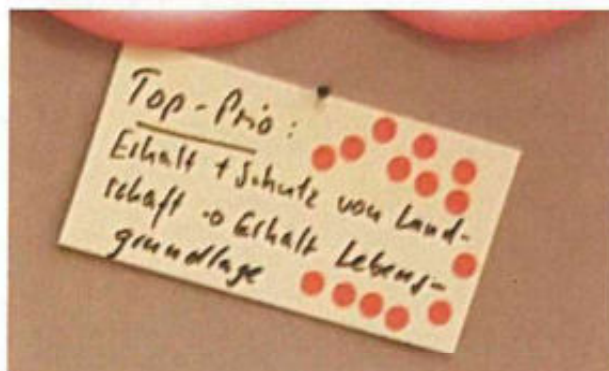 Top-Prio:
Erhalt + Schutz von Land-
schaft → Erhalt Lebens-
grundlage